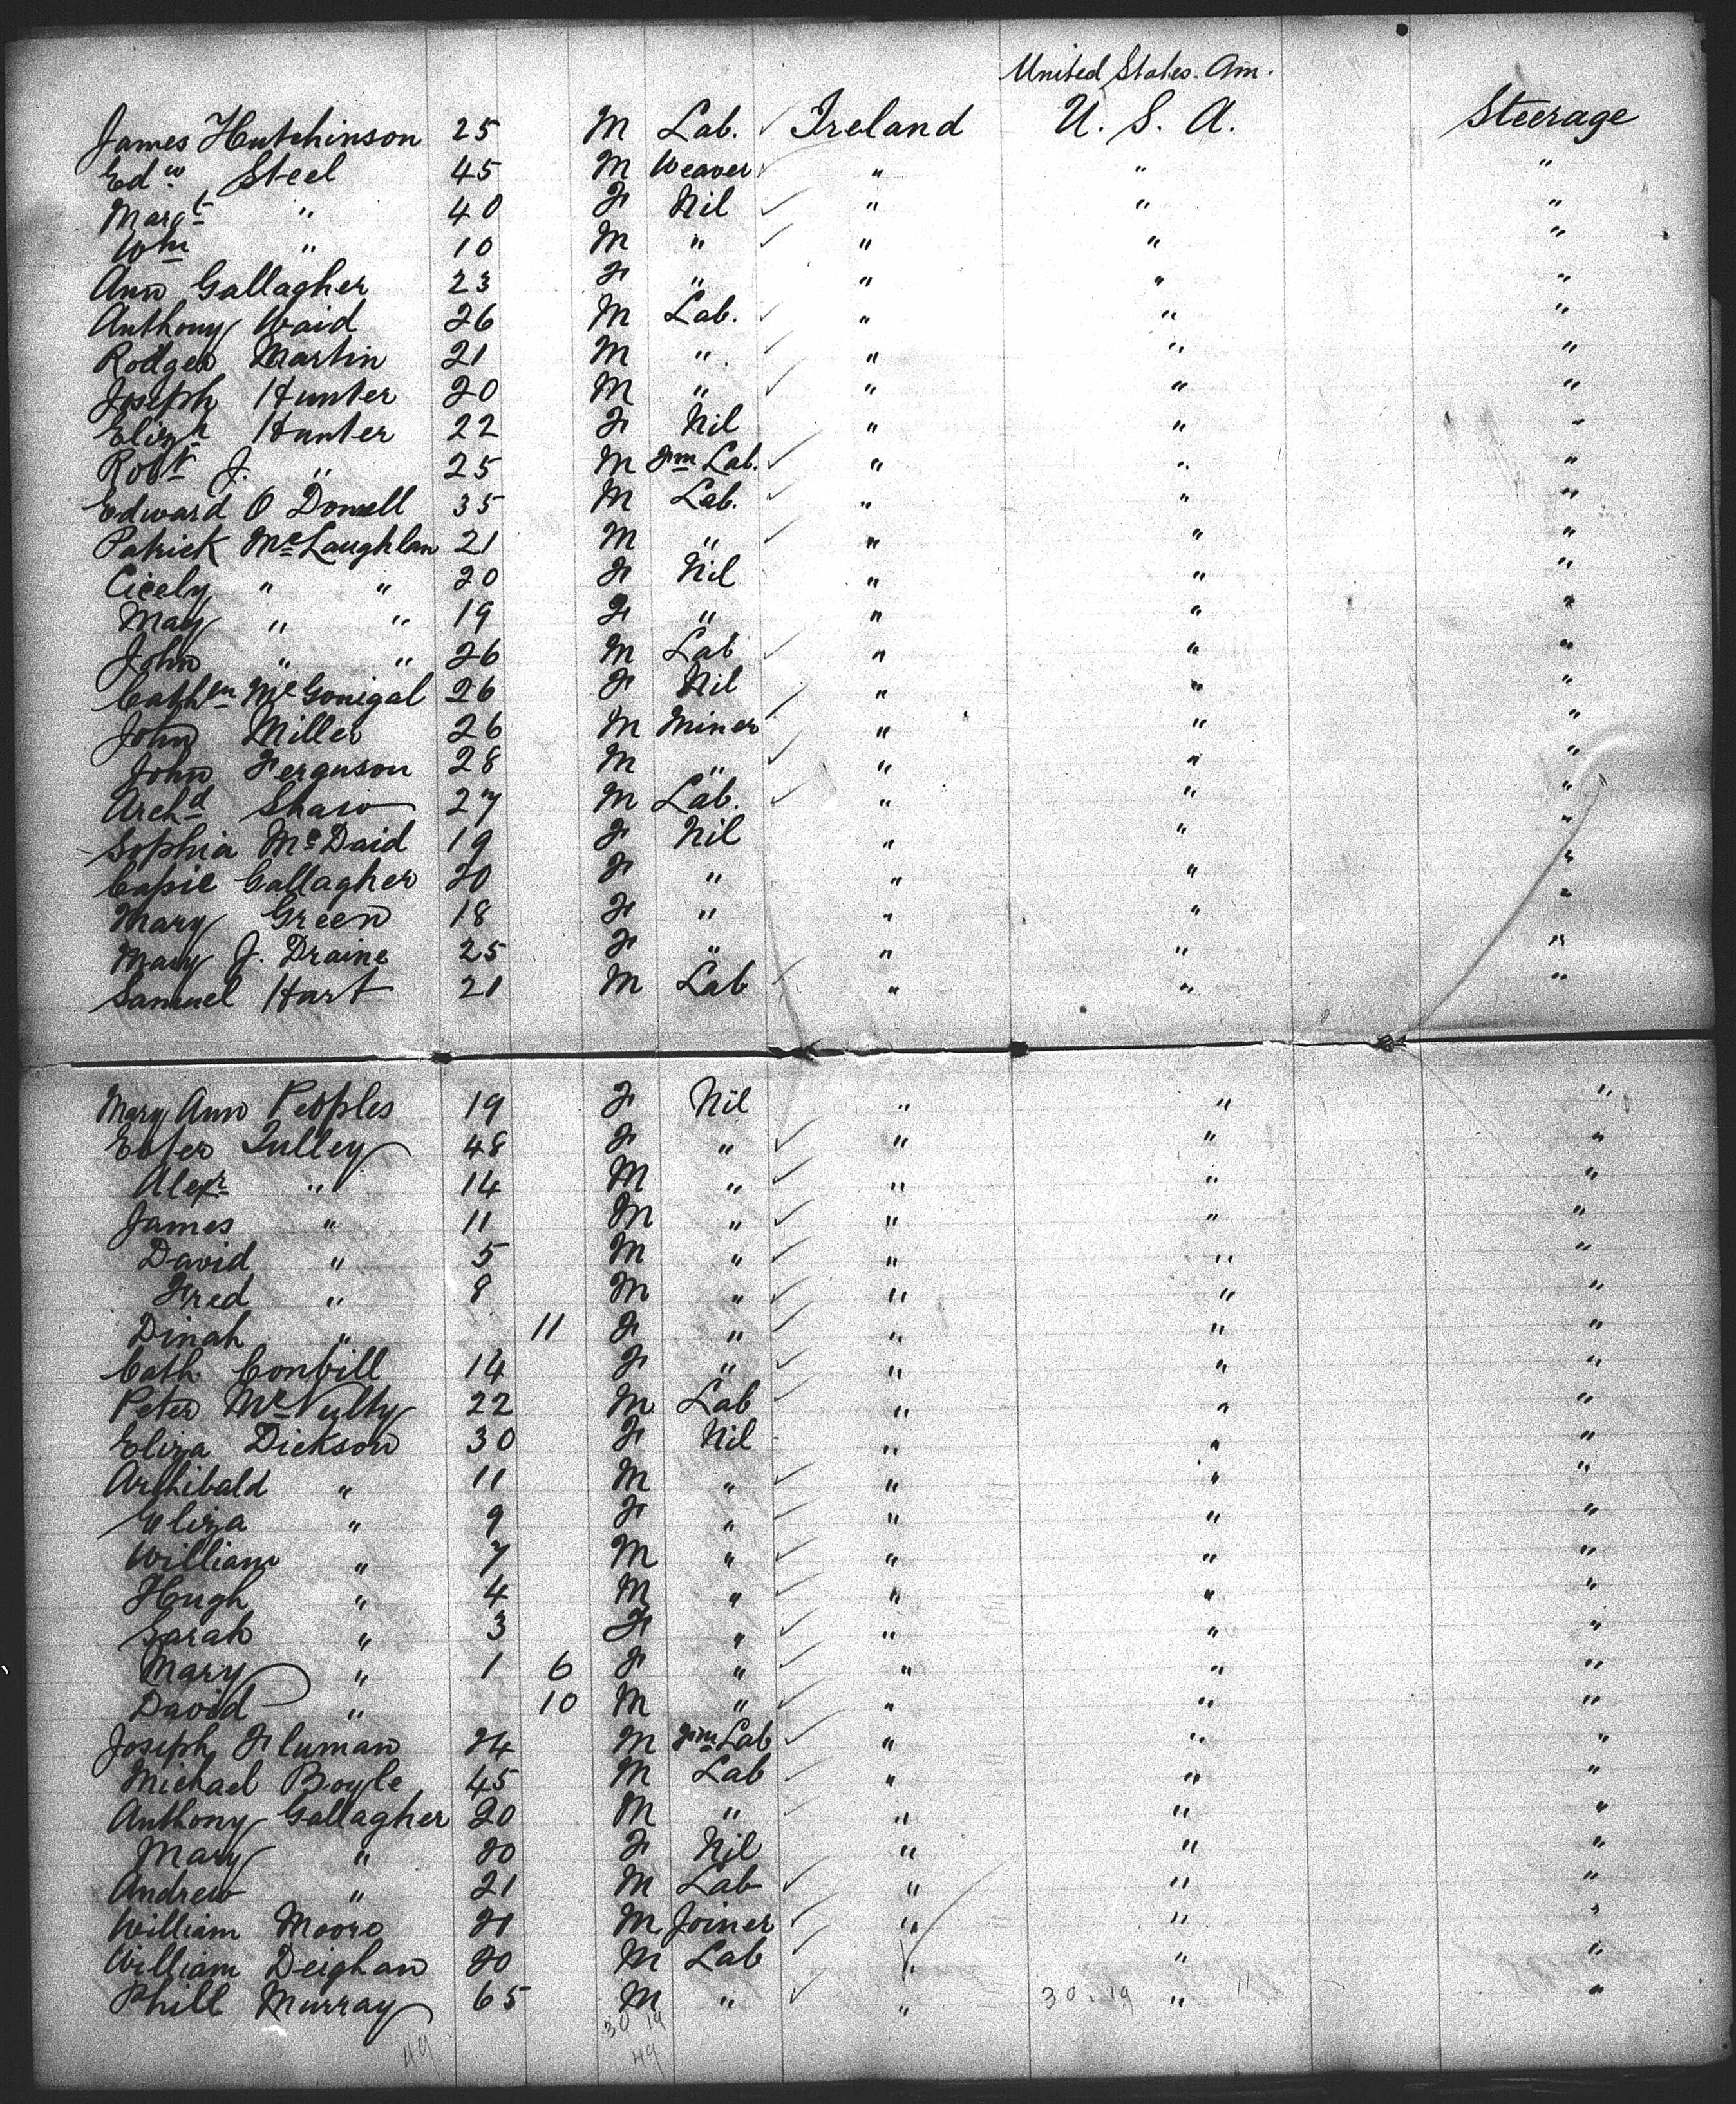 United States. Am.
James Hutchinson 25 M Lab. Ireland U. S. A. Steerage
Edw. Steel 45 M Weaver " " "
Margt " 40 F Nil " " "
Wm " 10 M " " " "
Ann Gallagher 23 F " " " "
Anthony Waid 26 M Lab. " " "
Rodger Martin 21 M " " " "
Joseph Hunter 20 M " " " "
Elizh Hunter 22 F Nil " " "
Robt J. " 25 M Fm Lab. " " "
Edward O Donnell 35 M Lab. " " "
Patrick McLaughlan 21 M " " " "
Cicely " " 20 F Nil " " "
May " " 19 F " " " "
John " " 26 M Lab " " "
Cathn McGonigal 26 F Nil " " "
John Miller 26 M Miner " " "
John Ferguson 28 M " " " "
Archd Shaw 27 M Lab. " " "
Sophia McDaid 19 F Nil " " "
Gallagher 20 F " " " "
Mary Green 18 F " " " "
Mary J. Draine 25 F " " " "
Samuel Hart 21 M Lab " " "
Mary Ann Peoples 19 F Nil " " "
Ester Tulley 48 F " " " "
Alexr " 14 M " " " "
James " 11 M " " " "
David " 5 M " " " "
Fred " 8 M " " " "
Dinah " 11 F " " " "
Cath. 14 F " " " "
Peter McNulty 22 M Lab " " "
Eliza Dickson 30 F Nil " " "
Archibald " 11 M " " " "
Eliza " 9 F " " " "
William " 7 M " " " "
Hugh " 4 M " " " "
Sarah " 3 F " " " "
Mary " 1 6 F " " " "
David " 10 M " " " "
Joseph Fluman 24 M Fm Lab " " "
Michael Boyle 45 M Lab " " "
Anthony Gallagher 20 M " " " "
Mary " 20 F Nil " " "
Andrew " 21 M Lab " " "
William Moore 21 M Joiner " " "
William Deighan 20 M Lab " " "
Phill Murray 65 M " " 30.19 " 11 "
30 19
49 49